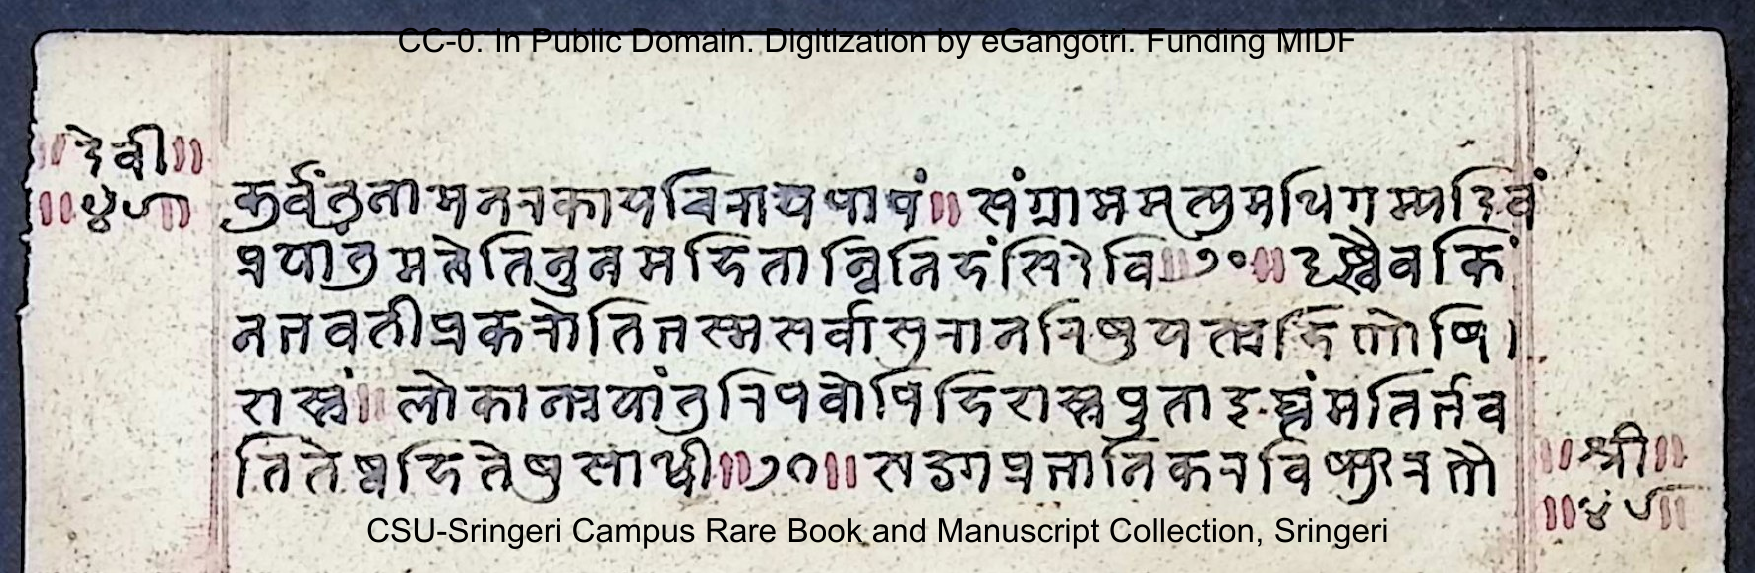 CC-0. In Public Domain. Digitization by eGangotri. Funding MIDF
॥देवी॥
कुर्वंतु नाम नरकाय चिराय पापं॥ संग्राममृत्युमधिगम्य दिवं
प्रयांतु मत्वेति नुनमहितान्विनिहंसि देवि॥७०॥ दृष्ट्वैव किं
न भवती प्रकरोति भस्म सर्वासुरानरिषु यत्प्रहिणोषि
शस्त्रं॥ लोकान्प्रयांतु रिपवोपि हि शस्त्रपुता इत्थं मतिर्भव
ति तेष्वहि तेषु साध्वी॥७१॥ खड्गप्रभानिकरविस्फुरनतो
॥श्री॥
CSU-Sringeri Campus Rare Book and Manuscript Collection, Sringeri